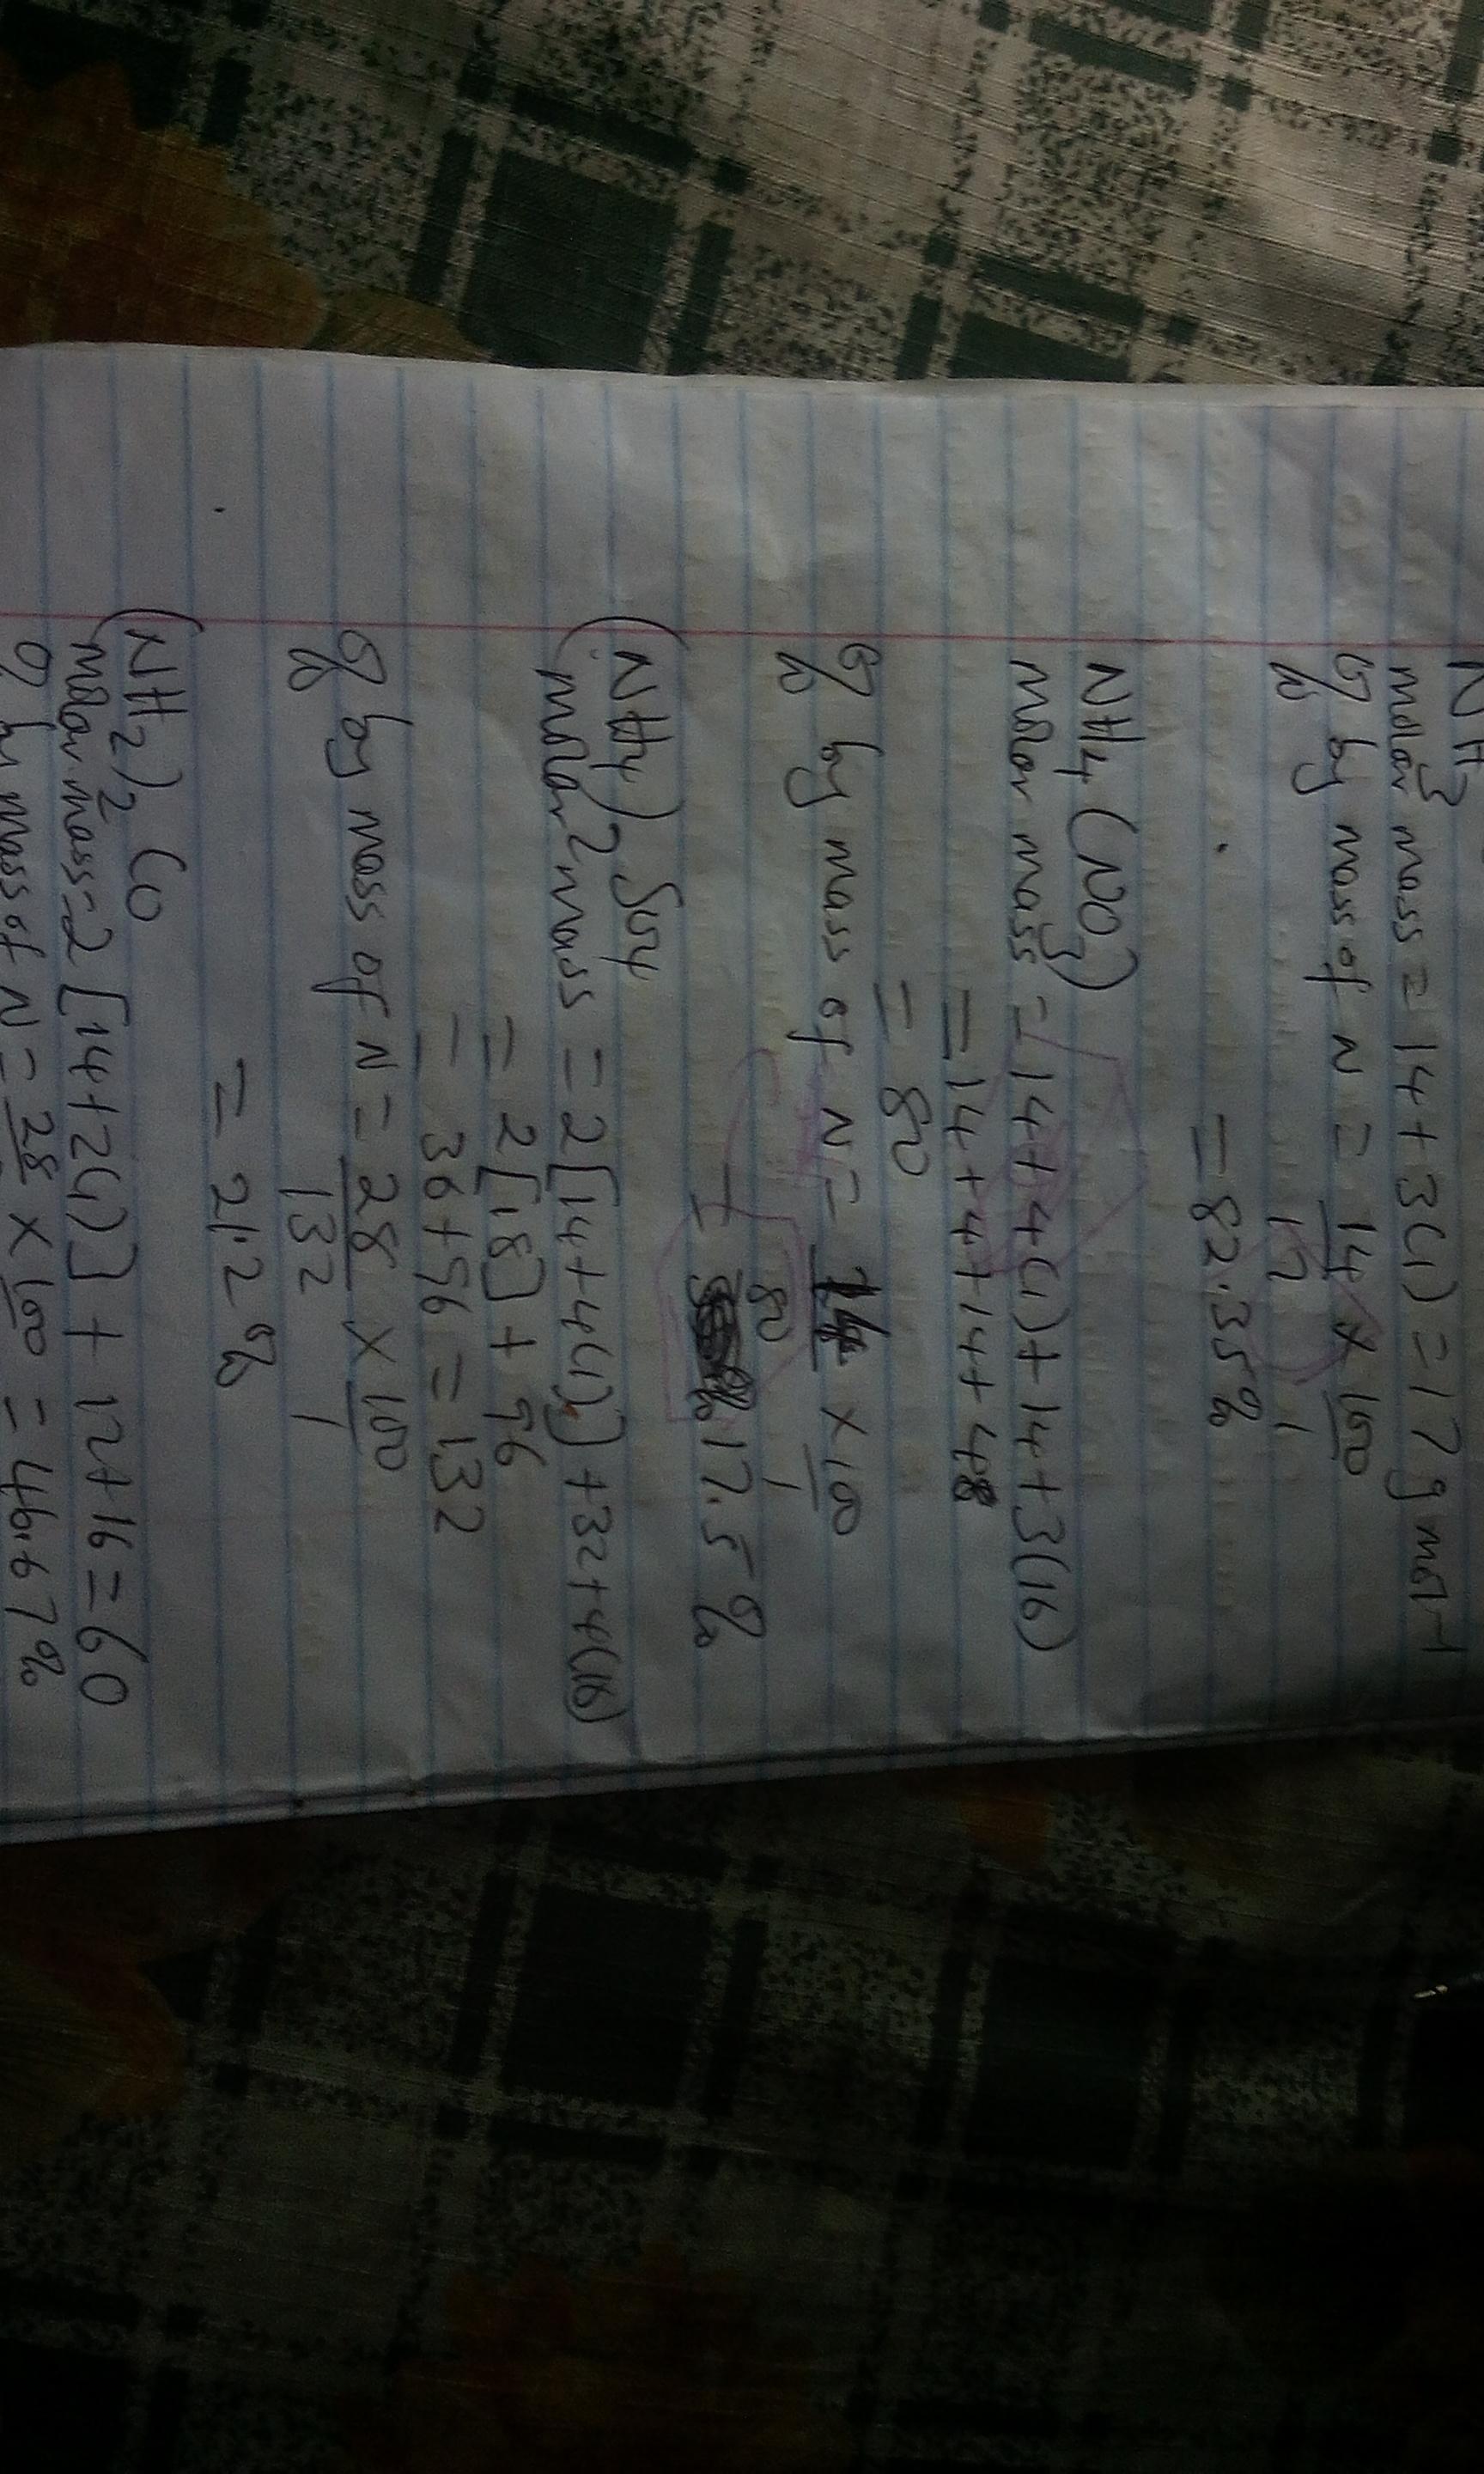 NH3
molar mass = 14 + 3(1) = 17 g mol-1
% by mass of N = 14/17 × 100/1
= 82.35%
NH4(NO3)
molar mass = 14+4(1)+14+3(16)
= 14+4+14+48
= 80
% by mass of N = 14/80 × 100/1
= 17.5%
(NH4)2SO4
molar mass = 2[14+4(1)]+32+4(16)
= 2[18] + 96
= 36+96 = 132
% by mass of N = 28/132 × 100/1
= 21.2%
(NH2)2CO
molar mass = 2[14+2(1)] + 12+16 = 60
% by mass of N = 28 × 100 = 46.67%